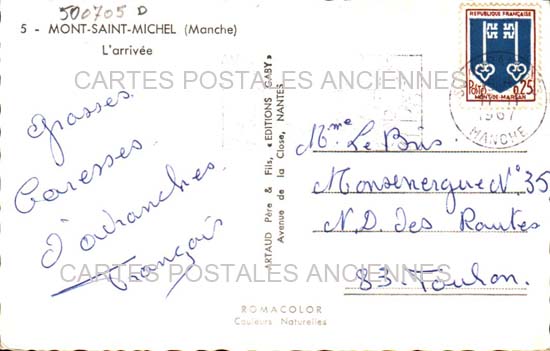 500705 D
5 - MONT-SAINT-MICHEL (Manche)
L'arrivée
REPUBLIQUE FRANÇAISE
POSTES 0,25
MONT-DE-MARSAN
1967
MANCHE
CARTES POSTALES ANCIENNES
Grosses
Caresses
d'avranches
François
ARTAUD Père & Fils, «EDITIONS GABY»
Avenue de la Close, NANTES
Mme Le Bris
Monsenergue N° 35
N.D. des Routes
83. Toulon.
CARTES POSTALES ANCIENNES
ROMACOLOR
Couleurs Naturelles